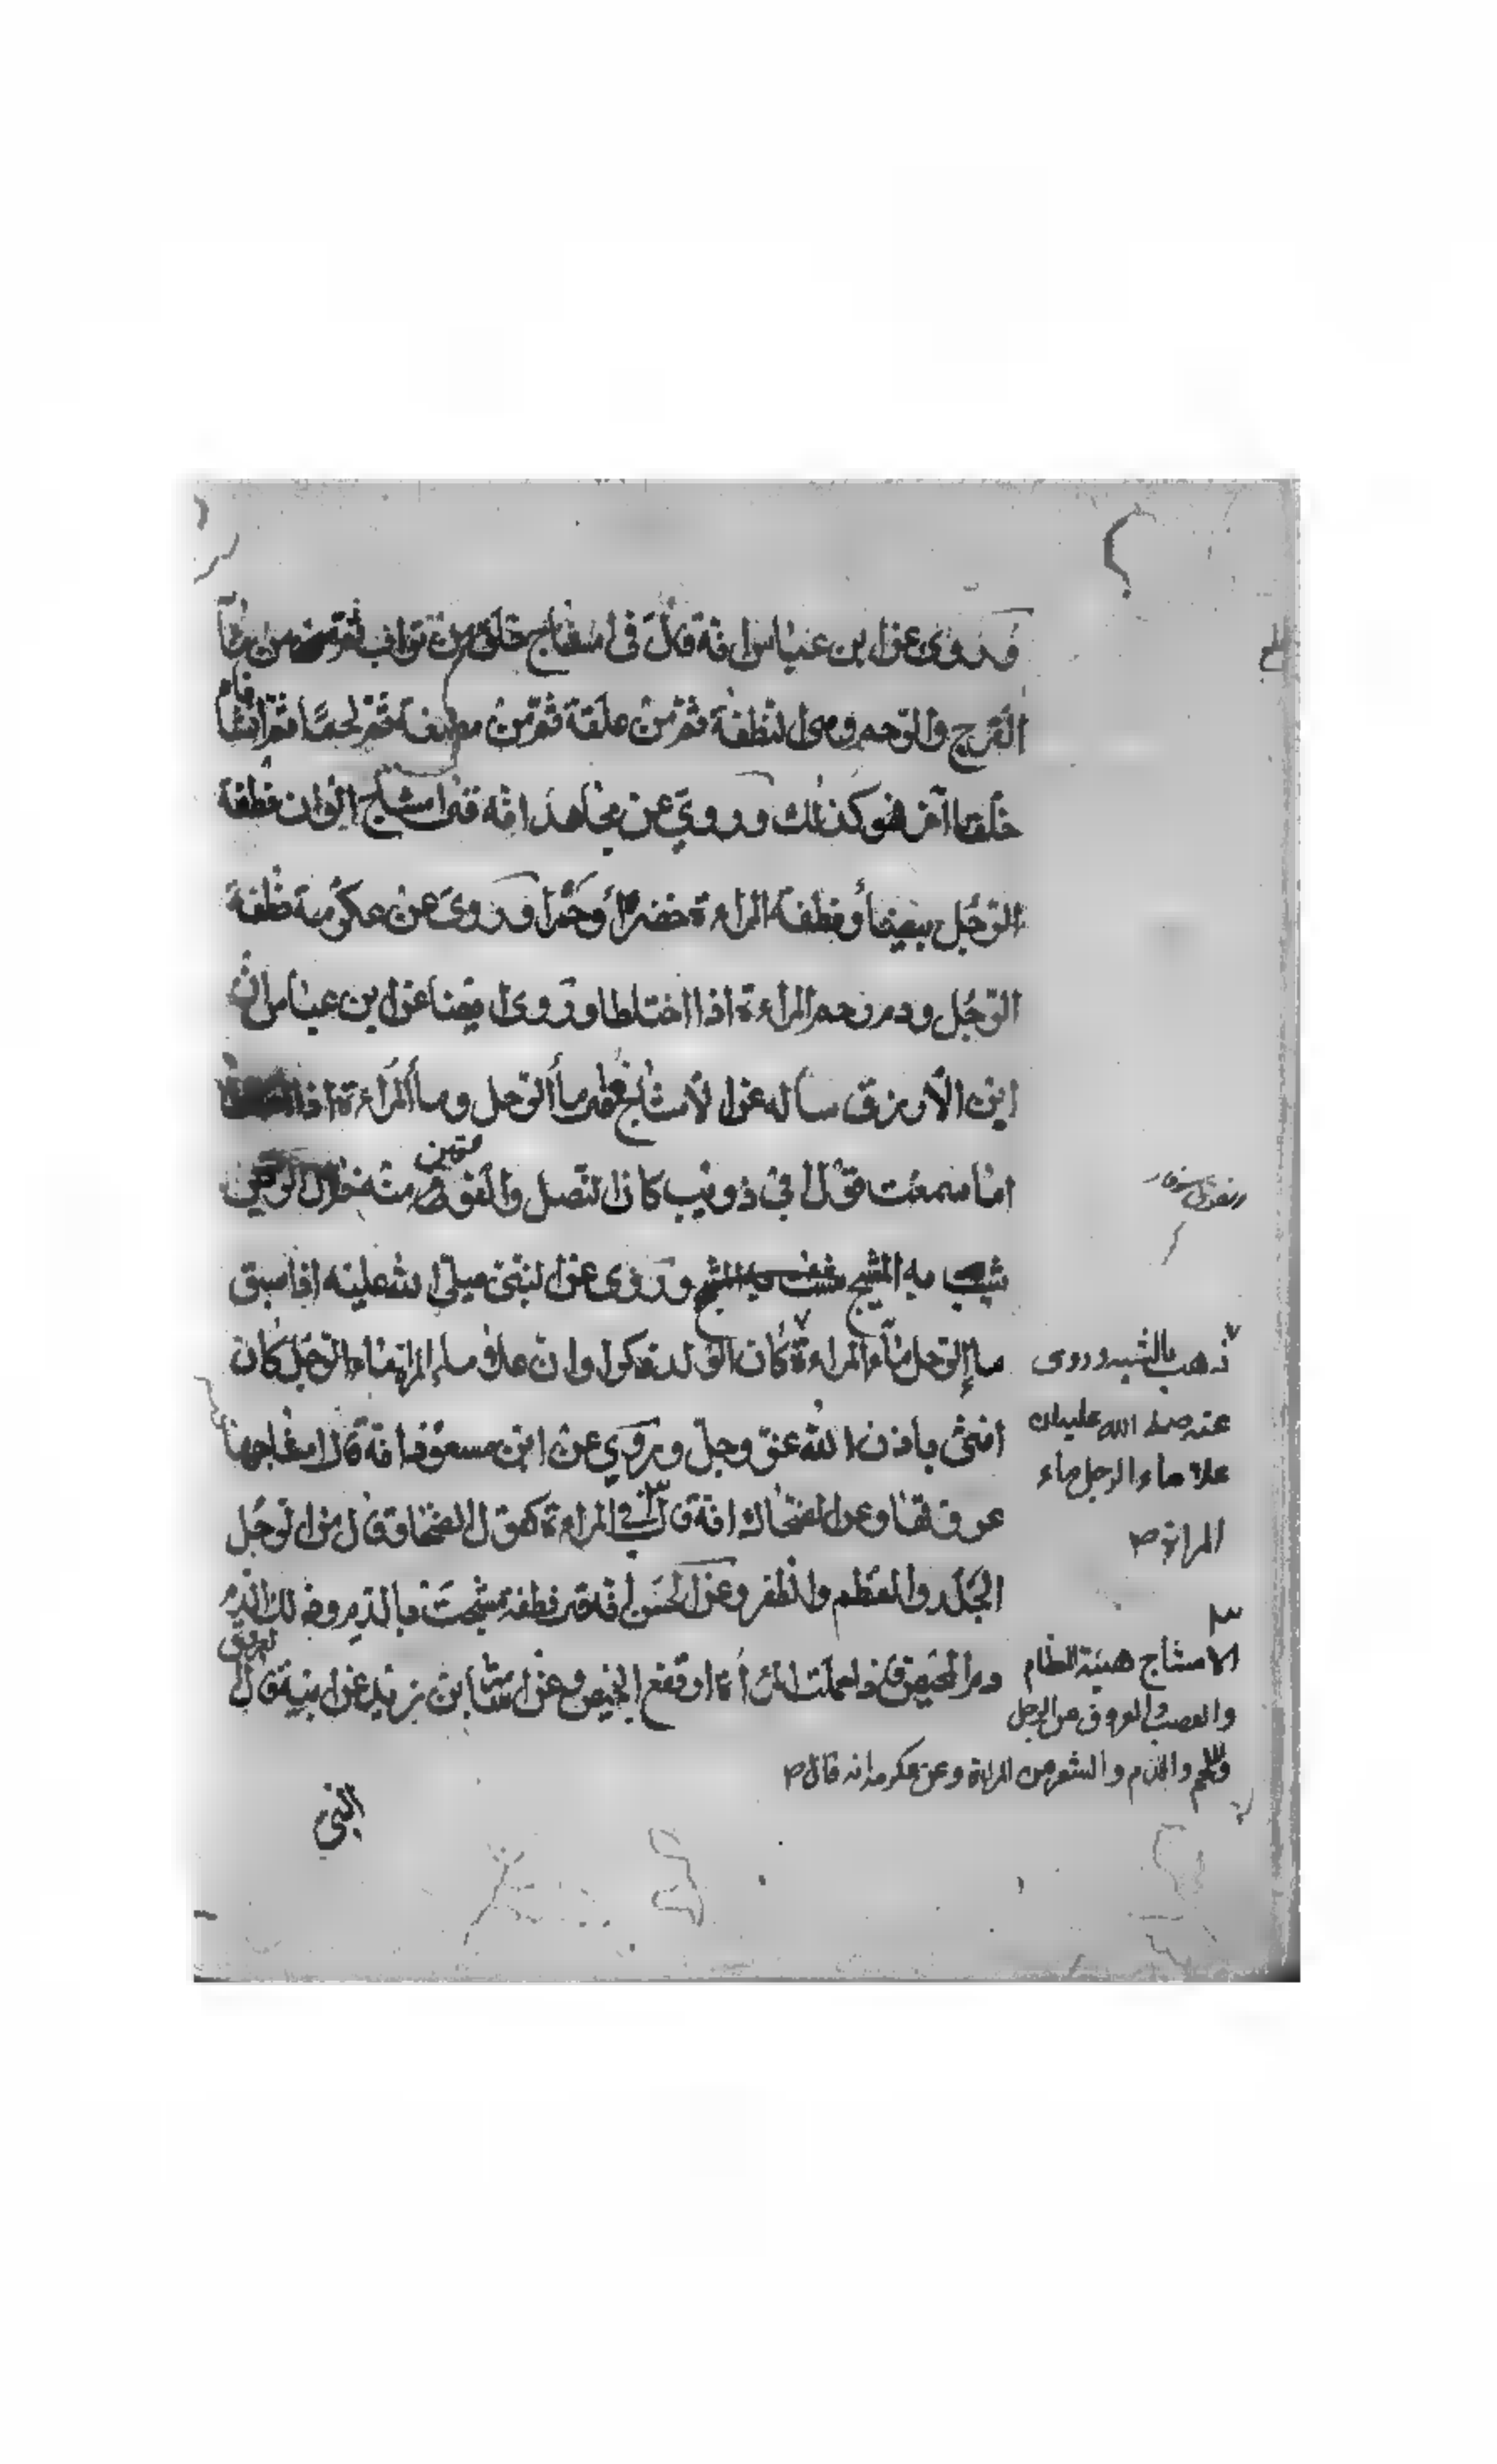 وروي عن ابن عباس انه قال في امشاج خلق من تراب ثم من ماء
الفرج والرحم وهي النطفة ثم من علقة ثم من مضغة ثم لحما ثم انشاء
خلقا آخر فهو كذلك وروي عن مجاهد انه قال امشاج الوان نطفة
الرجل بيضا ونطفة المراءة خضرا وحمرا وروي عن عكرمة نطفة
الرجل ودم رحم المراءة اذا اختلطا وروي ايضا عن ابن عباس ان
ابن الازرق ساله عن الامشاج فقال ماء الرجل وماء المراءة اذا
اما سمعت قول ابي ذويب كان النصل والفوقين منه خلال
شيب به المشيج وروي عن النبي صلى الله عليه اذا سبق
ماء الرجل ماء المراءة كان الولد ذكرا وان علا ماء المراة ماء الرجل كان
انثى باذن الله عز وجل وروي عن ابن مسعود انه قال امشاجها
عروقها وعن الضحاك انه قال في المراءة كقول الضحاك وقال من الرجل
الجلد والعظم والظفر وعن الحسن انه قال نطفة مشجت بالدم وذلك الدم
دم الحيض فاذا حملت المراة ارتفع الحيض وعن اسامة ابن زيد عن ابيه قال
النبي
ذهب بالشبه وروي
عنه صلى الله عليه ان
علا ماء الرجل ماء
المراة صح
الامشاج هينة العظام
والعصب والعروق من الرجل
واللحم والدم والشعر من المراة وعن عكرمة انه قال صح